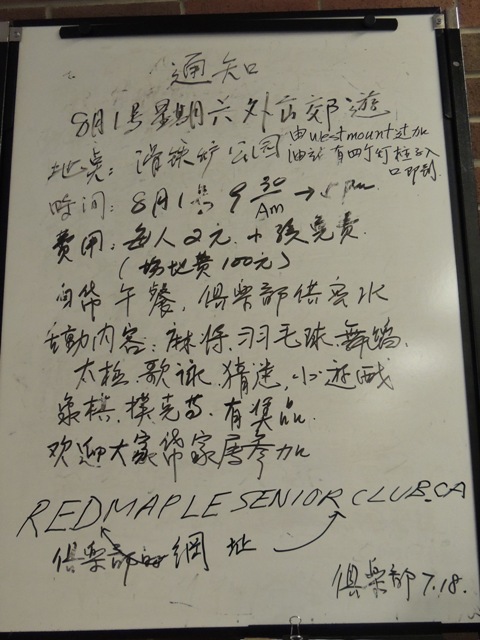 通知
8月1号星期六外出郊遊
地点: 滑鉄炉公园 由westmount过加
油站有四个灯柱入
口即到
時间: 8月1号 9 30 Am → 5 pm
費用: 每人2元. 小孩免費.
(場地費100元)
自带午餐, 俱樂部供茶水
活動内容: 麻将.羽毛球.舞蹈.
太极.歌詠.猜迷.小遊戏
象棋.撲克等.有奖品.
欢迎大家带家属参加
REDMAPLESENIORCLUB.CA
俱樂部的網址
俱樂部 7.18.